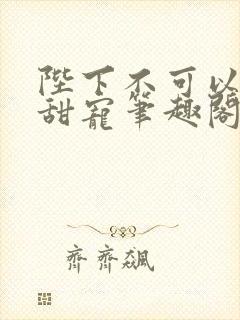 陛下不可以
甜寵筆趣閣
齊齊飆